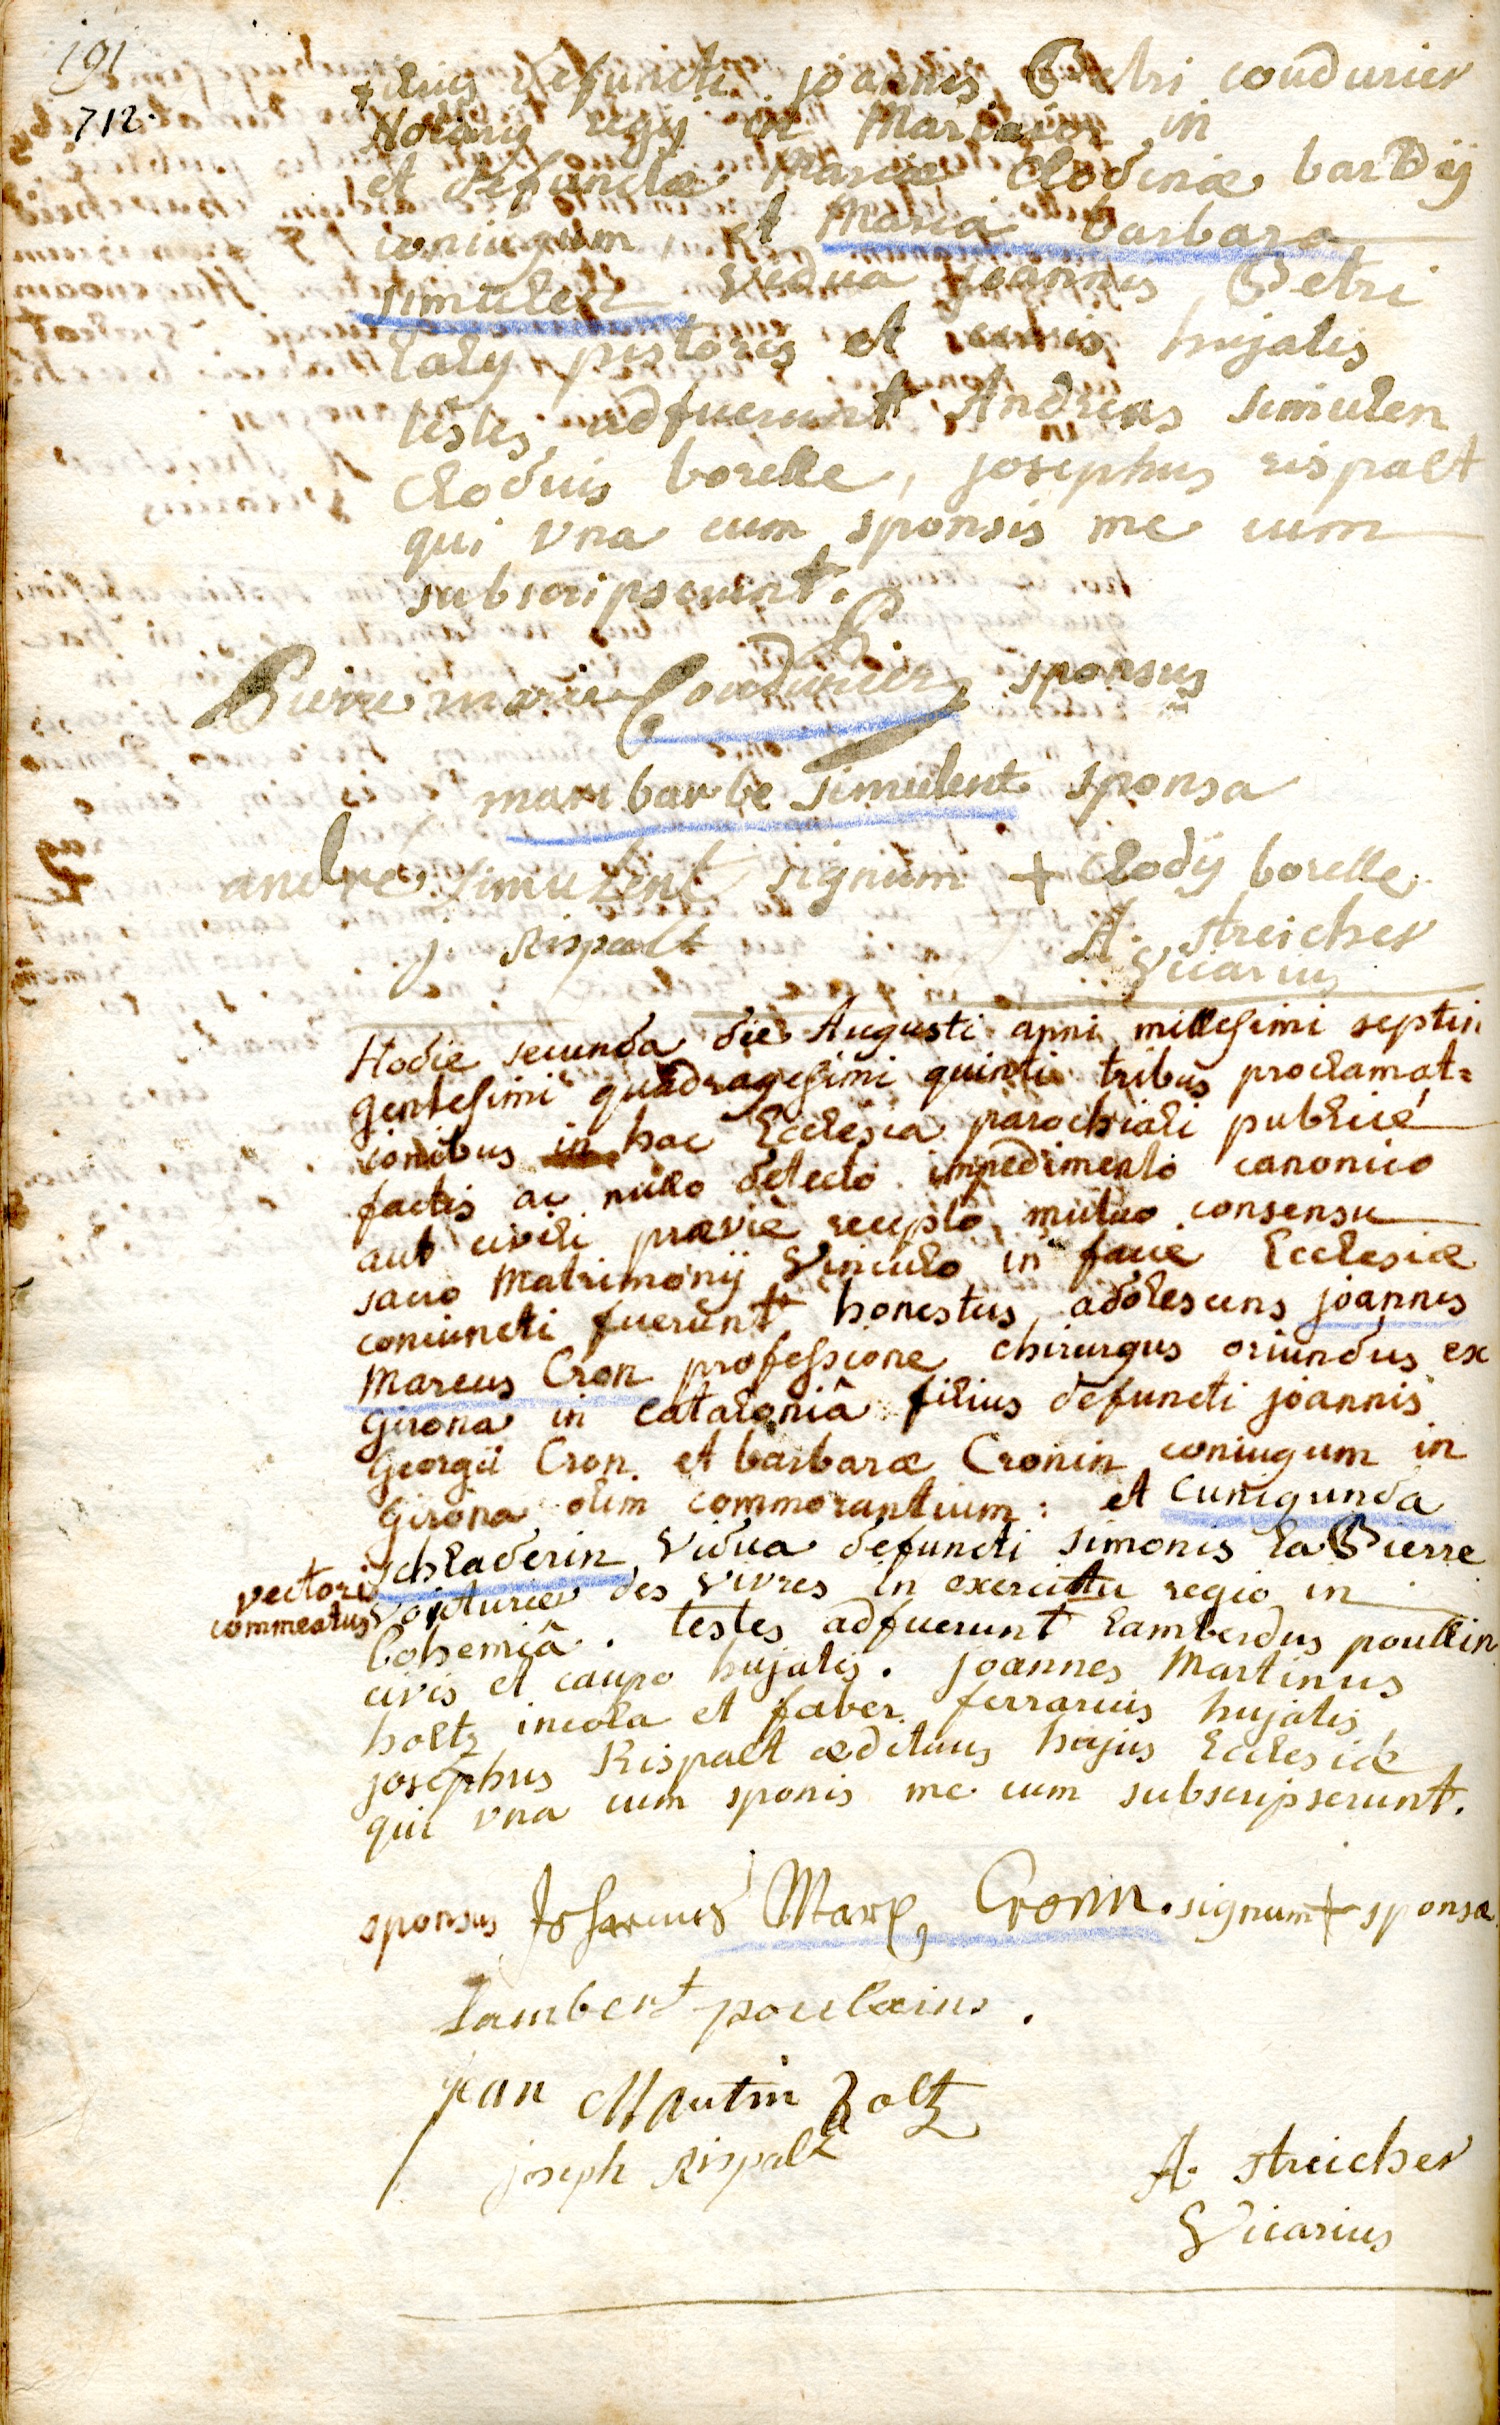 191
712.
filius defuncti joannis Petri coudurier
Notarij regij in in
et defunctæ Mariæ Clodinæ bardij
coniugum, et Maria barbara
simulen vidua joannis Petri
laly pistoris et civis hujatis
testes adfuerunt Andreas simulen
Clodius borelle, josephus rispalt
qui vna cum sponsis me cum
subscripserunt.
Pierre marie Coudurier sponsus
mari barbe simulent sponsa
andre simulent signum + Clodij borelle
j. Rispalt A. streicher
Vicarius
Hodie secunda die Augusti anni millesimi septin
gentesimi quadragesimi quinti tribus proclamat=
ionibus in hac Ecclesia parochiali publicè
factis ac nullo detecto impedimento canonico
aut civili præviè recepto mutuo consensu
sacro Matrimonij Vinculo in facie Ecclesiæ
coniuncti fuerunt honestus adolescens joannes
Marcus Cron professione chirurgus oriundus ex
Girona in cataloniâ filius defuncti joannis
Georgii Cron et barbaræ Cronin coniugum in
Girona olim commorantium: et Cunigunda
schladerin vidua defuncti simonis la Pierre
vectoris
commeatus
voiturier des vivres in exercitu regio in
bohemiâ. testes adfuerunt lamberdus poullin
civis et caupo hujatis. joannes Martinus
holtz incola et faber ferrarius hujatis
josephus Rispalt ædituus hujus Ecclesiæ
qui vna cum sponis me cum subscripserunt.
sponsus Johannes Marx Cronn. signum + sponsæ
Lambert poulains.
jean Martin Holtz
joseph Rispalt
A. streicher
Vicarius